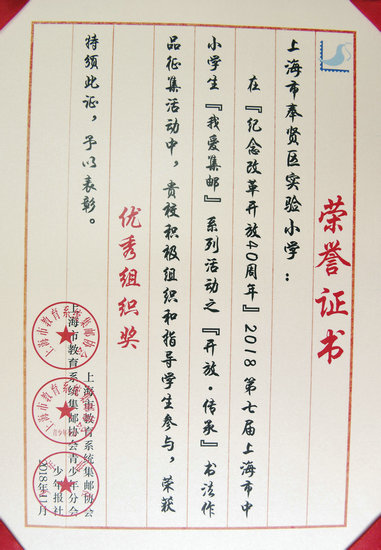 荣誉证书
上海市奉贤区实验小学：
在『纪念改革开放40周年』2018第七届上海市中
小学生『我爱集邮』系列活动之『开放·传承』书法作
品征集活动中，贵校积极组织和指导学生参与，荣获
优秀组织奖
特颁此证，予以表彰。
上海市教育系统集邮协会
上海市教育系统集邮协会青少年分会
少年报社
2018年11月
上海市教育系统集邮协会